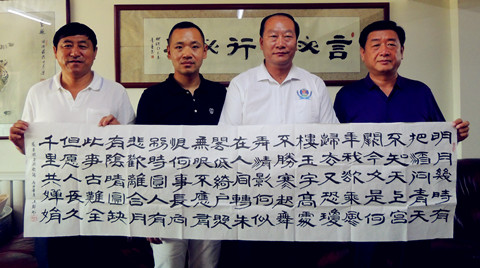 言 行
明月幾時有
把酒問青天
不知天上宮
闕今夕是何
年我欲乘風
歸去又恐瓊
樓玉宇高處
不勝寒起舞
弄清影何似
在人間轉朱
閣低綺戶照
無眠不應有
恨何事長向
別時圓人有
悲歡離合月
有陰晴圓缺
此事古難全
但願人長久
千里共嬋娟